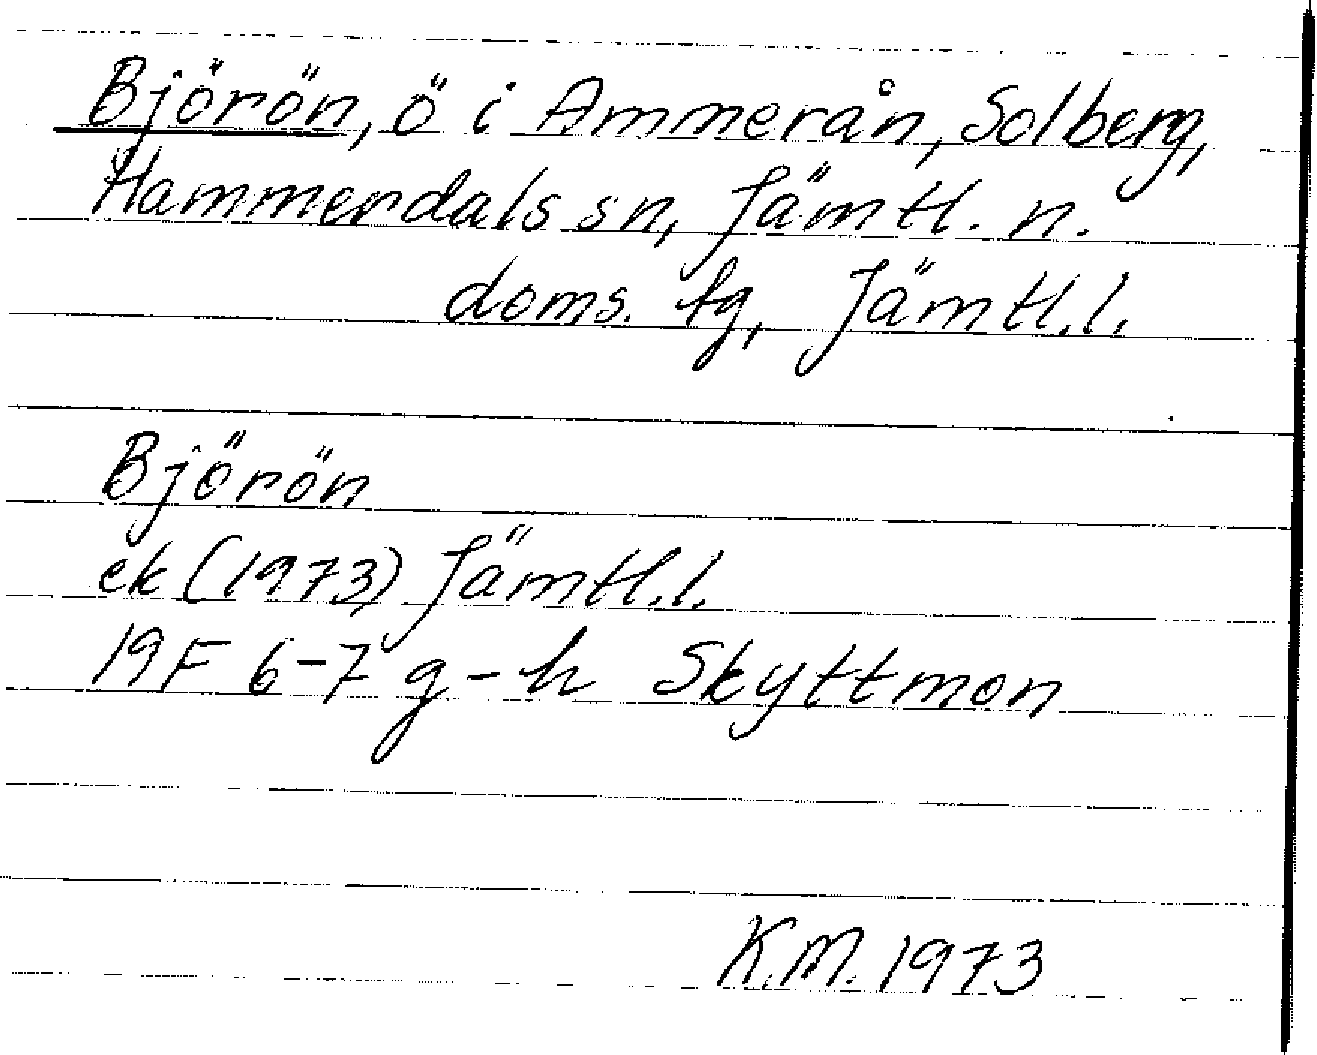 Björön, ö i Ammerån, Solberg,
Hammerdals sn, Jämtl. n.
doms. tg, Jämtl.l.
Björön
ek (1973) Jämtl.l.
19F 6-7 g-h Skyttmon
K.M. 1973